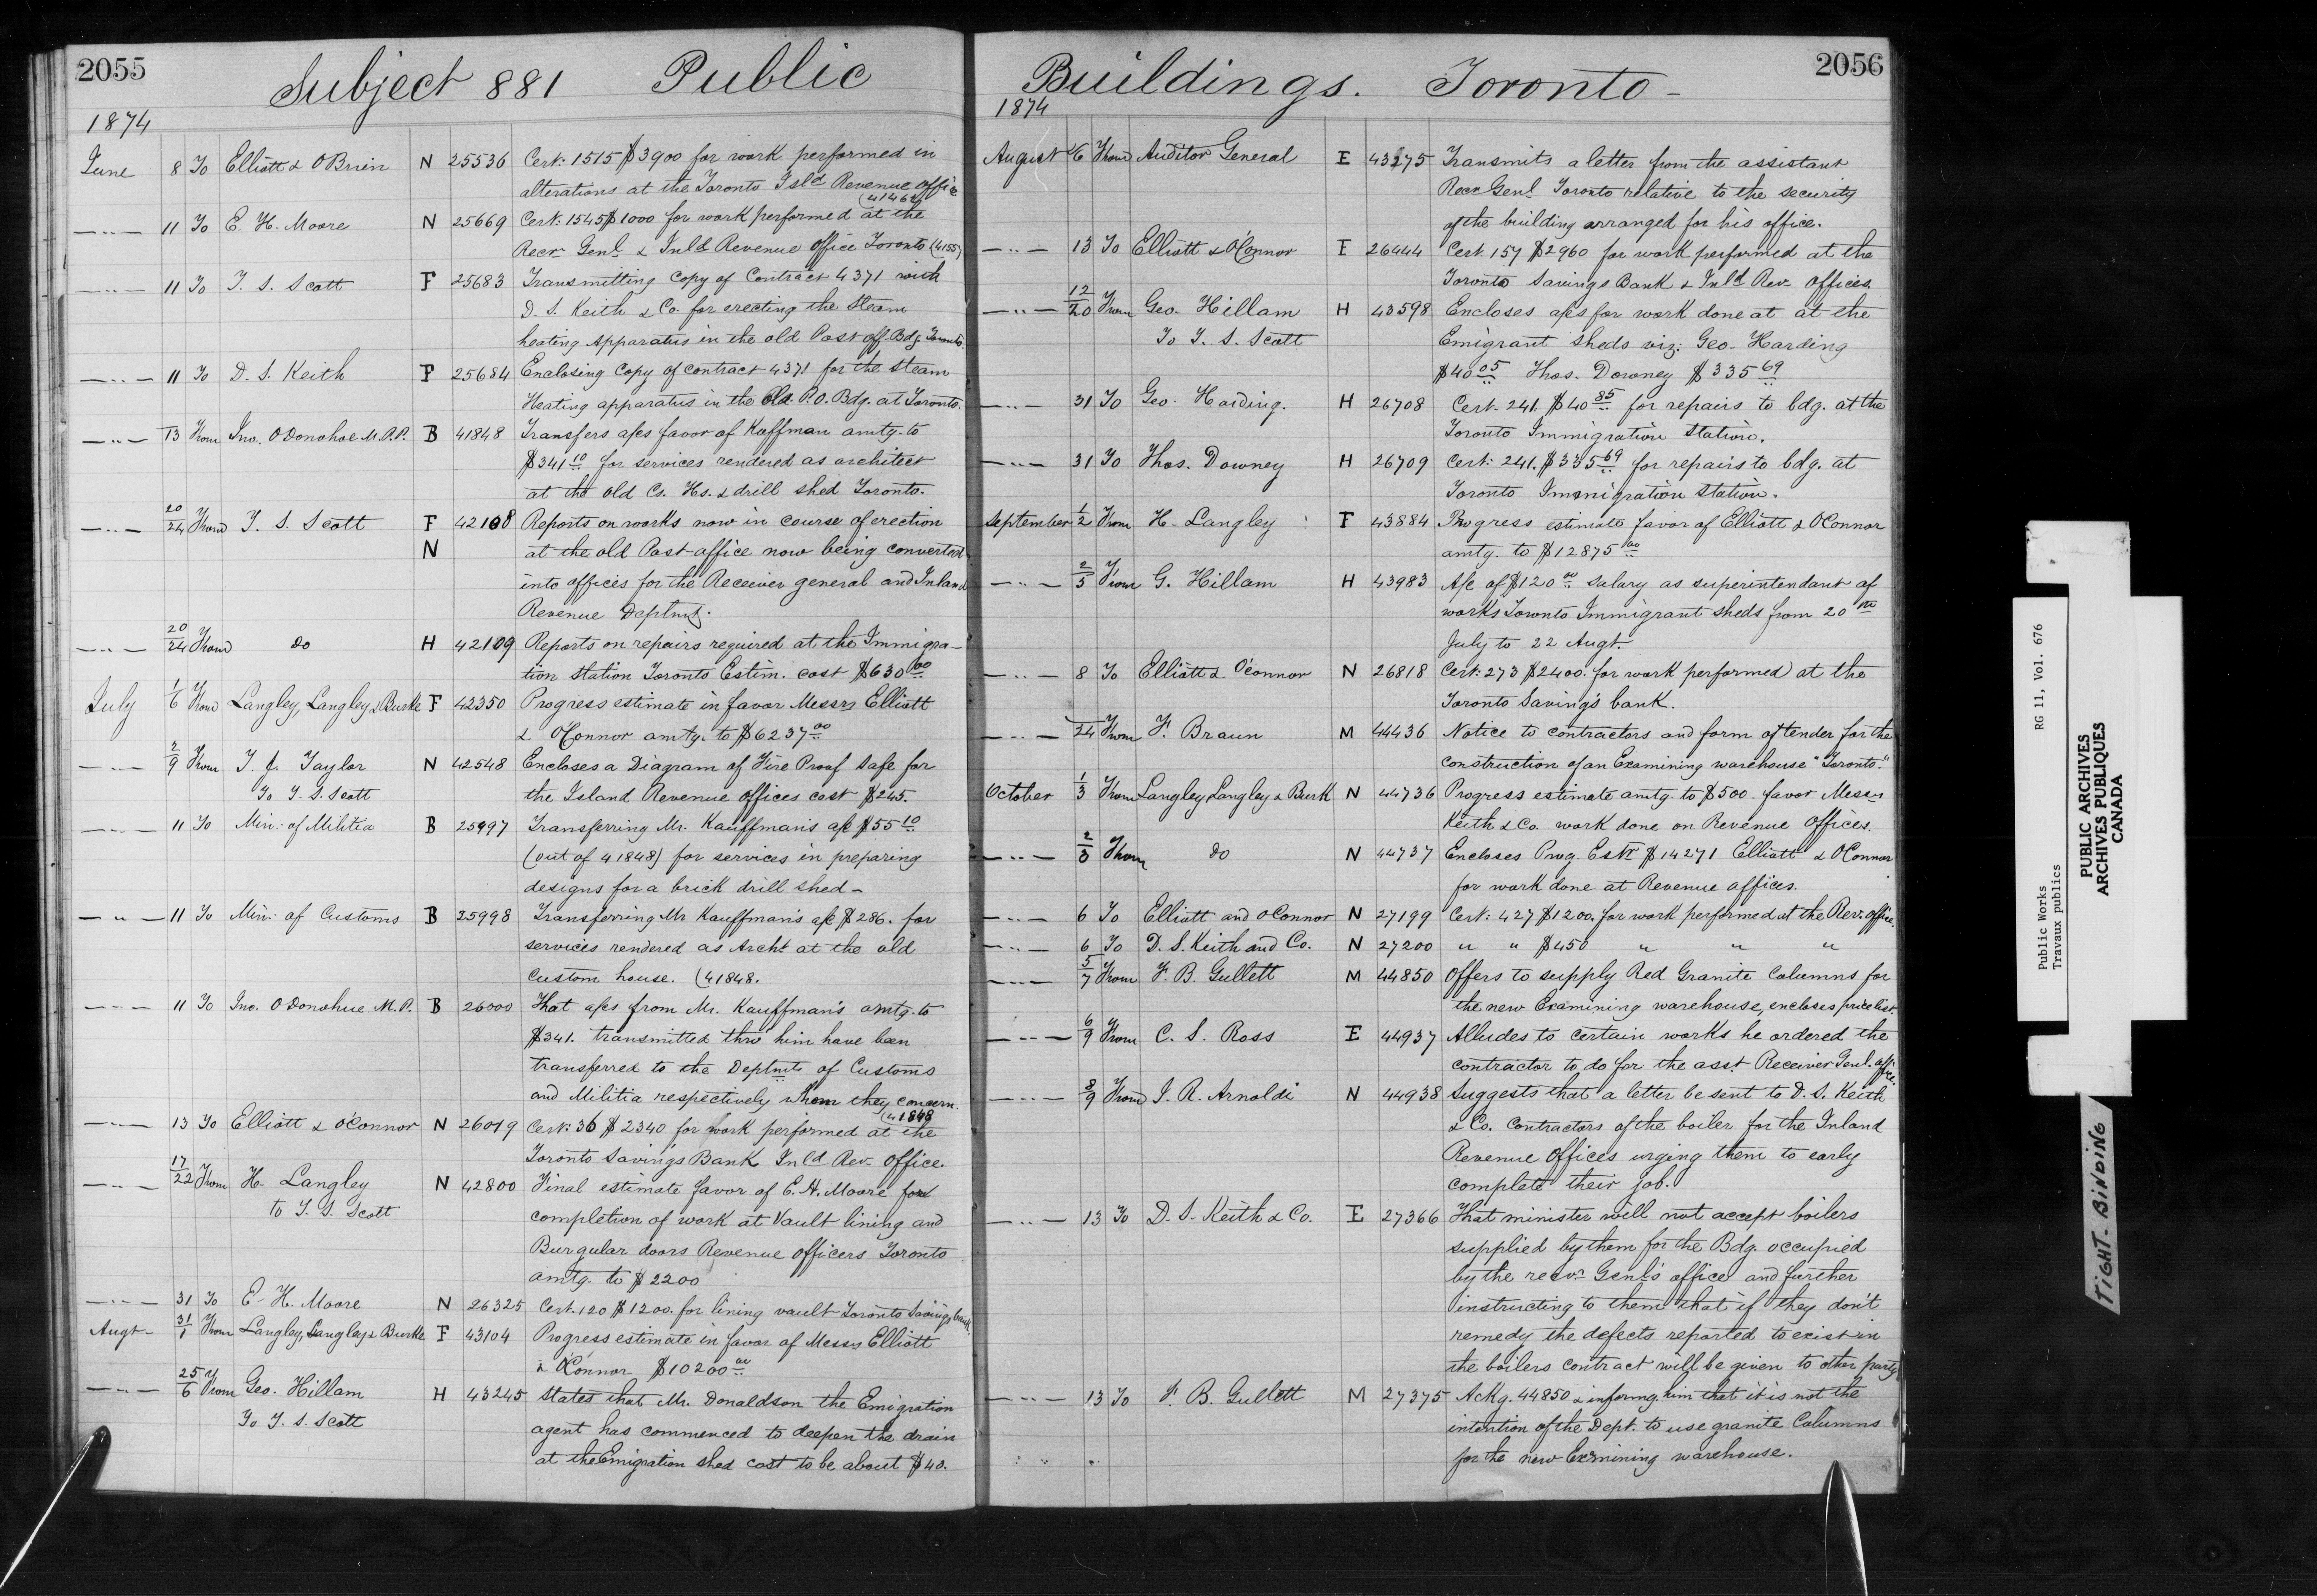 2055
Subject 881 Public
1874
June 8 To Elliott & O'Brien N 25536 Cert: 1515 $3900 for work performed in
alterations at the Toronto Isld Revenue office
(41462)
—〃— 11 To E. H. Moore N 25669 Cert: 1545 $1000 for work performed at the
Recr Genl & Inld Revenue office Toronto (4155)
—〃— 11 To T. S. Scott F 25683 Transmitting copy of Contract 4371 with
D. S. Keith & Co. for erecting the Steam
heating Apparatus in the old Post off. Bdg. Toronto.
—〃— 11 To D. S. Keith F 25684 Enclosing Copy of contract 4371 for the steam
Heating apparatus in the Old P.O. Bdg. at Toronto.
—〃— 13 From Jno. O'Donohoe M.P.P. B 41848 Transfers a/cs favor of Kaffman amtg. to
$341 10 for services rendered as architect
at the old Cs. Hs. & drill shed Toronto.
—〃— 20/24 From T. S. Scott F 42108 Reports on works now in course of erection
N at the old Post-office now being converted
into offices for the Receiver general and Inland
Revenue Deptmt.
—〃— 20/24 From do H 42109 Reports on repairs required at the Immigra-
tion station Toronto Estim. cost $630 00
July 1/6 From Langley, Langley & Burke F 42350 Progress estimate in favor Messrs Elliott
& O'Connor amtg. to $6237 00
—〃— 2/9 From T. J. Taylor N 42548 Encloses a Diagram of Fire Proof Safe for
To T. S. Scott the Island Revenue offices cost $245.
—〃— 11 To Min: of Militia B 25997 Transferring Mr. Kauffman's a/c $55 10
(out of 41848) for services in preparing
designs for a brick drill shed—
—〃— 11 To Min: of Customs B 25998 Transferring Mr Kauffman's a/c $286. for
services rendered as Archt. at the old
Custom house. (41848.
—〃— 11 To Jno. O'Donohue M.P. B 26000 That a/cs from Mr. Kauffman's amtg. to
$341. transmitted thro' him have been
transferred to the Deptmts of Customs
and Militia respectively whom they concern.
(41848
—〃— 13 To Elliott & O'Connor N 26019 Cert: 36 $2340 for work performed at the
Toronto Savings Bank Inld Rev. Office.
—〃— 17/22 From H. Langley N 42800 Final estimate favor of E. H. Moore for
to T. S. Scott completion of work at Vault lining and
Burgular doors Revenue officers Toronto
amtg. to $2200
—〃— 31 To E. H. Moore N 26325 Cert. 120 $1200. for lining vault Toronto Savings bank.
Augt— 31/1 From Langley, Langley & Burke F 43104 Progress estimate in favor of Messrs Elliott
& O'Connor $10200 00
—〃— 25/6 From Geo. Hillam H 43245 States that Mr. Donaldson the Emigration
To T. S. Scott agent has commenced to deepen the drain
at the Emigration shed cost to be about $40.
2056
Buildings. Toronto—
1874
August 6 From Auditor General E 43275 Transmits a letter from the assistant
Recr Genl Toronto relative to the security
of the building arranged for his office.
—〃— 13 To Elliott & O'Connor E 26444 Cert 157 $2960 for work performed at the
Toronto Savings Bank & Inld Rev. offices.
—〃— 12/20 From Geo. Hillam H 43598 Encloses a/cs for work done at at the
To T. S. Scott Emigrant sheds viz: Geo. Harding
$40 05 Thos. Downey $335 69
—〃— 31 To Geo. Harding. H 26708 Cert. 241. $40 85 for repairs to bdg. at the
Toronto Immigration Station.
—〃— 31 To Thos. Downey H 26709 Cert: 241. $335 69 for repairs to bdg. at
Toronto Immigration Station.
September 1/2 From H. Langley F 43884 Progress estimate favor of Elliott & O'Connor
amtg. to $12875 00
—〃— 2/5 From G. Hillam H 43983 A/c of $120 00 salary as superintendant of
works Toronto Immigrant sheds from 20th
July to 22 Augt.
—〃— 8 To Elliott & O'connor N 26818 Cert: 273 $2400. for work performed at the
Toronto Saving's bank.
—〃— 24 From F. Braun M 44436 Notice to contractors and form of tender for the
construction of an Examining warehouse "Toronto."
October 1/3 From Langley Langley & Burk N 44736 Progress estimate amtg. to $500. favor Messrs
Keith & Co. work done on Revenue Offices.
—〃— 2/3 From do N 44737 Encloses Prog. Este $14271 Elliott & O'Connor
for work done at Revenue offices.
—〃— 6 To Elliott and O'Connor N 27199 Cert: 427 $1200. for work performed at the Rev: office.
—〃— 6 To D. S. Keith and Co. N 27200 〃 〃 $450 〃 〃 〃
—〃— 5/7 From F. B. Gullett M 44850 Offers to supply Red Granite Columns for
the new Examining warehouse, encloses price list.
—〃— 6/9 From C. S. Ross E 44937 Alludes to certain works he ordered the
contractor to do for the asst Receiver Genl. office.
—〃— 8/9 From J. R. Arnoldi N 44938 Suggests that a letter be sent to D. S. Keith
& Co. Contractors of the boiler for the Inland
Revenue Offices urging them to early
complete their job.
—〃— 13 To D. S. Keith & Co. E 27366 That minister will not accept boilers
supplied by them for the Bdg. occupied
by the recvr Genl's office and further
instructing to them that if they don't
remedy the defects reported to exist in
the boilers contract will be given to other party
—〃— 13 To F. B. Gullett M 27375 Ackg. 44850 & informg. him that it is not the
intention of the Dept. to use granite Columns
for the new Examining warehouse.
Public Works RG 11, Vol. 676
Travaux publics
PUBLIC ARCHIVES
ARCHIVES PUBLIQUES
CANADA
TIGHT. BINDING